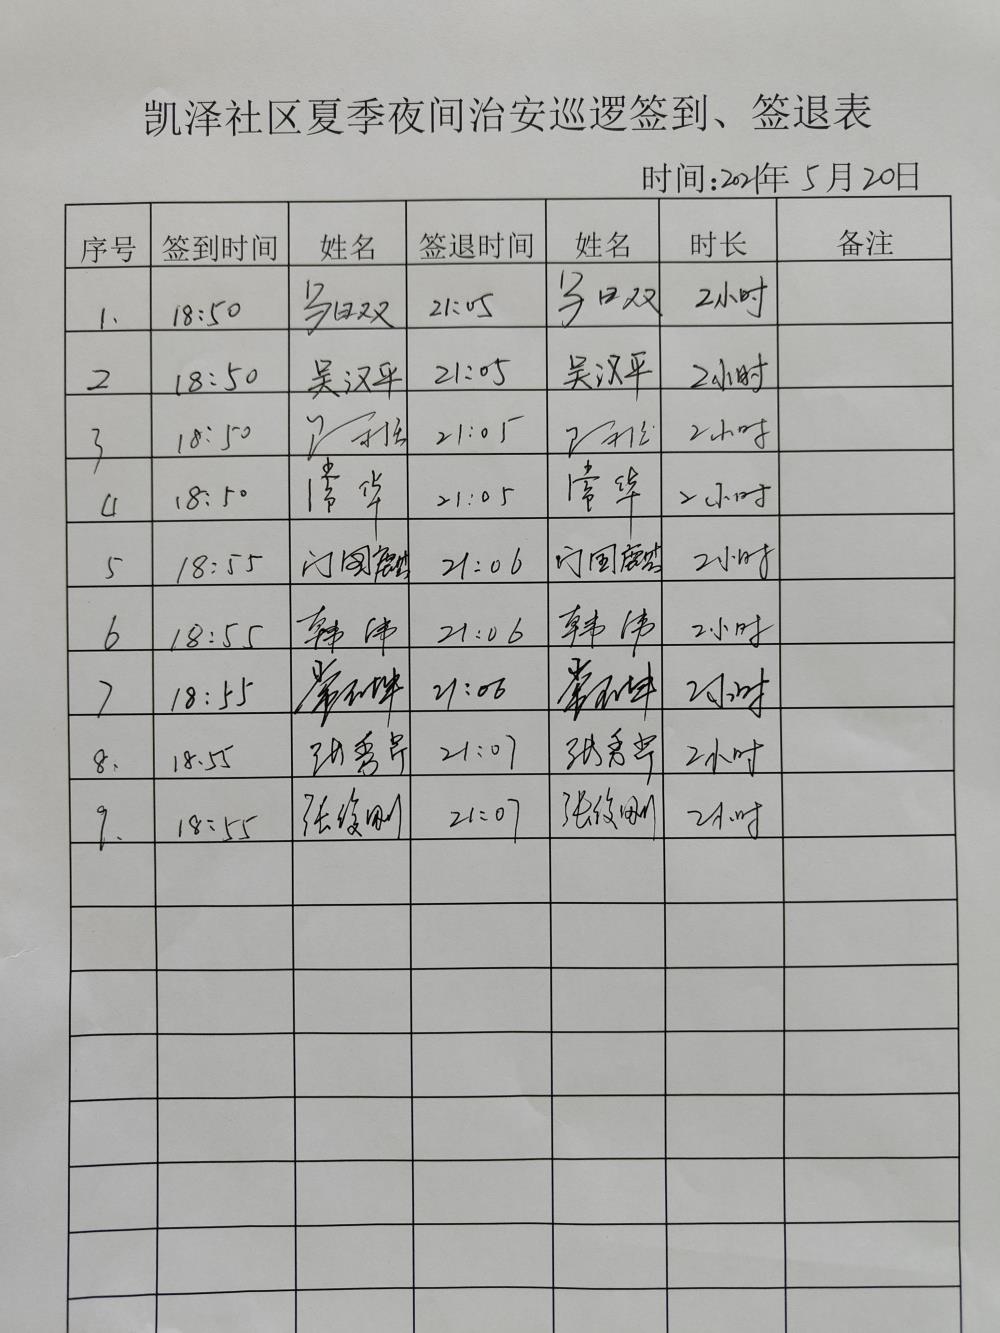 凯泽社区夏季夜间治安巡逻签到、签退表
时间:2021年 5月20日
序号 签到时间 姓名 签退时间 姓名 时长 备注
1. 18:50 21:05 2小时
2 18:50 吴汉平 21:05 吴汉平 2小时
3 18:50 21:05 2小时
4 18:50 常华 21:05 常华 2小时
5 18:55 21:06 2小时
6 18:55 韩伟 21:06 韩伟 2小时
7 18:55 21:06 2小时
8. 18.55 张秀芹 21:07 张秀芹 2小时
9. 18:55 张俊刚 21:07 张俊刚 2小时